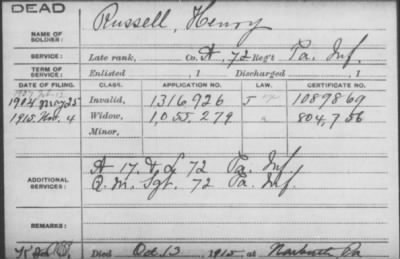 DEAD
NAME OF SOLDIER: Russell, Henry
SERVICE: Late rank, Co. A, 72 Reg't Pa. Inf.
TERM OF SERVICE: Enlisted , 1 Discharged , 1
DATE OF FILING. CLASS. APPLICATION NO. LAW. CERTIFICATE NO.
1904 May 25 Invalid, 1316,926 1089869
1915 Nov. 4 Widow, 1,055,279 804,756
Minor,
ADDITIONAL SERVICES: A-17. & 72 Pa. Inf.
Q. M. Sgt. 72 Pa. Inf.
REMARKS:
Died Oct 13, 1915 at Narberth, Pa